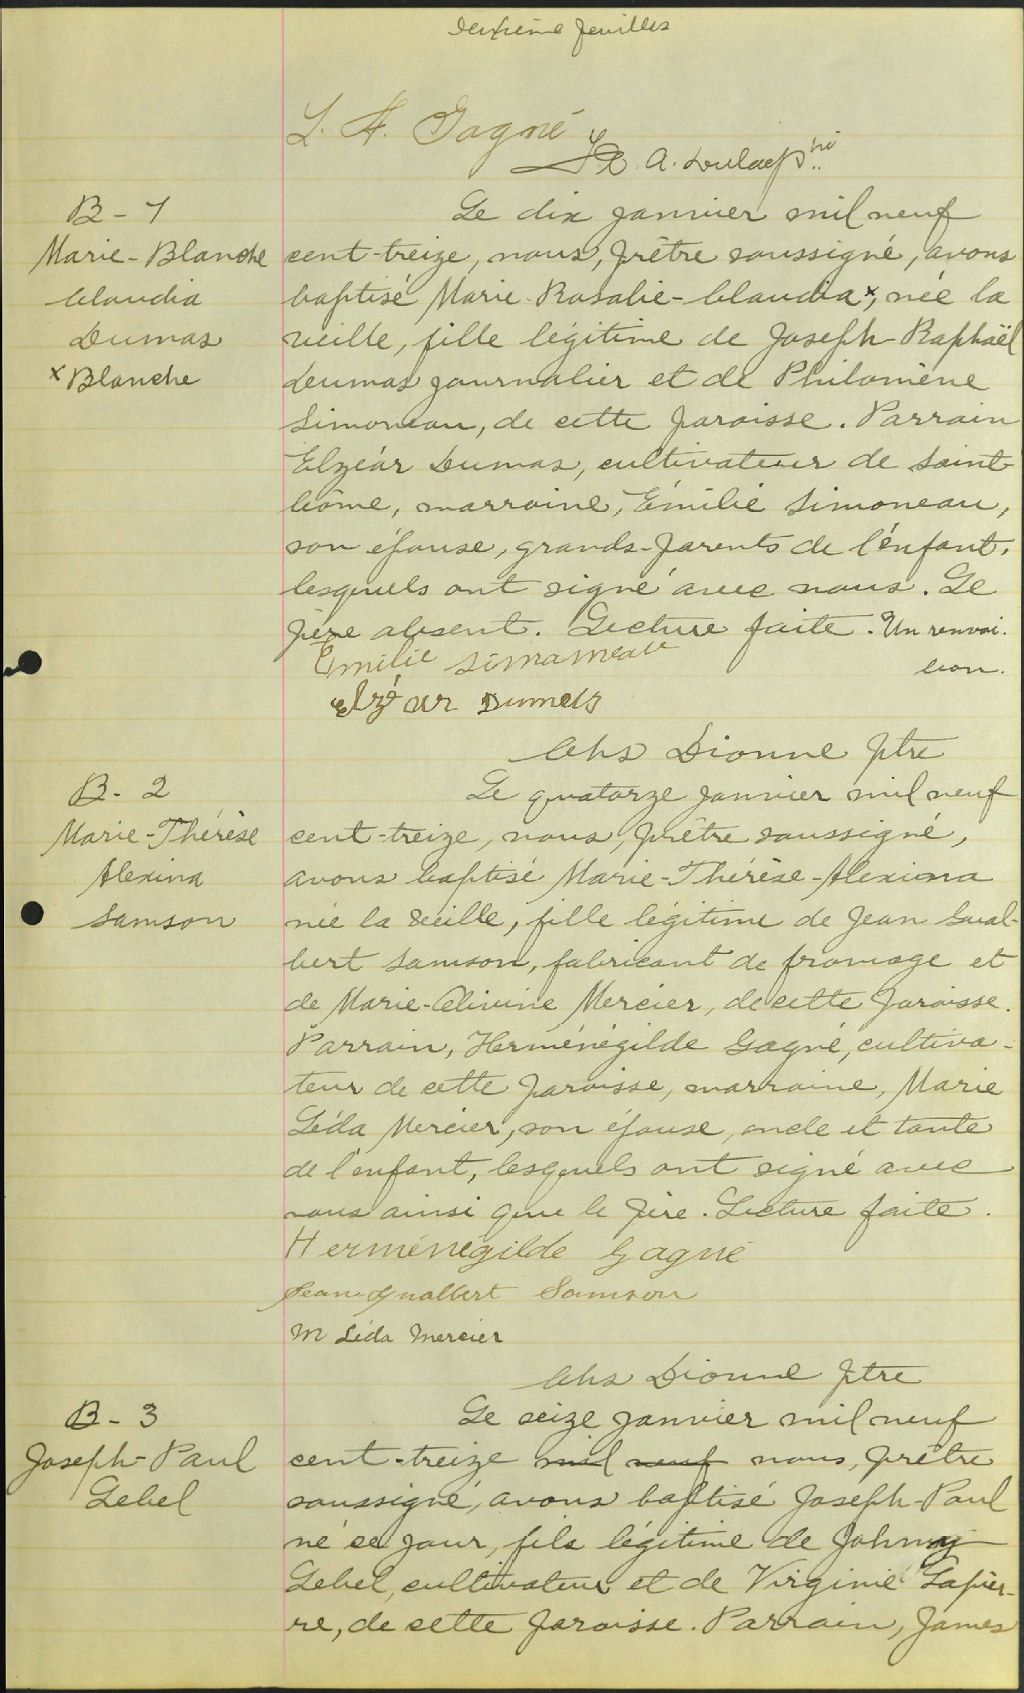 deuxième feuillet
L. A. Gagné
A. Ptre
B - 1
Marie - Blanche
Claudia
Dumas
x Blanche
Le dix janvier mil neuf
cent-treize, nous, prêtre soussigné, avons
baptisé Marie-Rosalie-Claudia x, née la
veille, fille légitime de Joseph-Raphaël
Dumas journalier et de Philomène
Simoneau, de cette paroisse. Parrain
Elzéar Dumas, cultivateur de Saint-
Côme, marraine, Émilie Simoneau,
son épouse, grands-parents de l'enfant,
lesquels ont signé avec nous. Le
père absent. Lecture faite. Un renvoi.
bon.
Emilie Simoneau
Elzéar Dumas
Chs Dionne ptre
B - 2
Marie-Thérèse
Alexina
Samson
Le quatorze janvier mil neuf
cent-treize, nous, prêtre soussigné,
avons baptisé Marie-Thérèse-Alexina
née la veille, fille légitime de Jean Gual-
bert Samson, fabricant de fromage et
de Marie-Olivine Mercier, de cette paroisse.
Parrain, Herménégilde Gagné, cultiva-
teur de cette paroisse, marraine, Marie
Léda Mercier, son épouse, oncle et tante
de l'enfant, lesquels ont signé avec
nous ainsi que le père. Lecture faite.
Herménégilde Gagné
Jean-Gualbert Samson
M Léda Mercier
Chs Dionne ptre
B - 3
Joseph-Paul
Lebel
Le seize janvier mil neuf
cent-treize mil neuf nous, prêtre
soussigné, avons baptisé Joseph-Paul
né ce jour, fils légitime de Johnny
Lebel, cultivateur et de Virginie Lapier-
re, de cette paroisse. Parrain, James